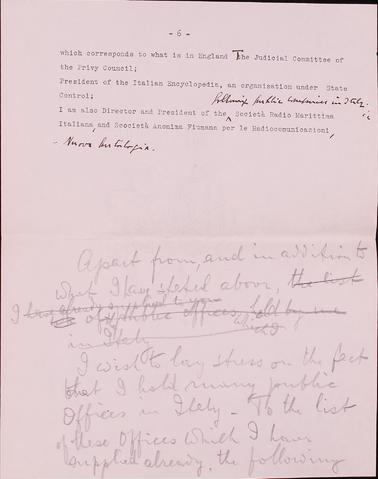 - 6 -
which corresponds to what is in England The Judicial Committee of
the Privy Council;
President of the Italian Encyclopedia, an organisation under State
Control;
following public companies in Italy
I am also Director and President of the Società Radio Marittima
Italiana, and Scocietà Anonima Fiumana per le Radiocomunicazioni,
- Nuova
Apart from, and in addition to
what I have stated above, the list
I have already supplied to you
of public offices held by me
in Italy
I wish to lay stress on the fact
that I hold many public
Offices in Italy - To the list
of these Offices which I have
supplied already, the following